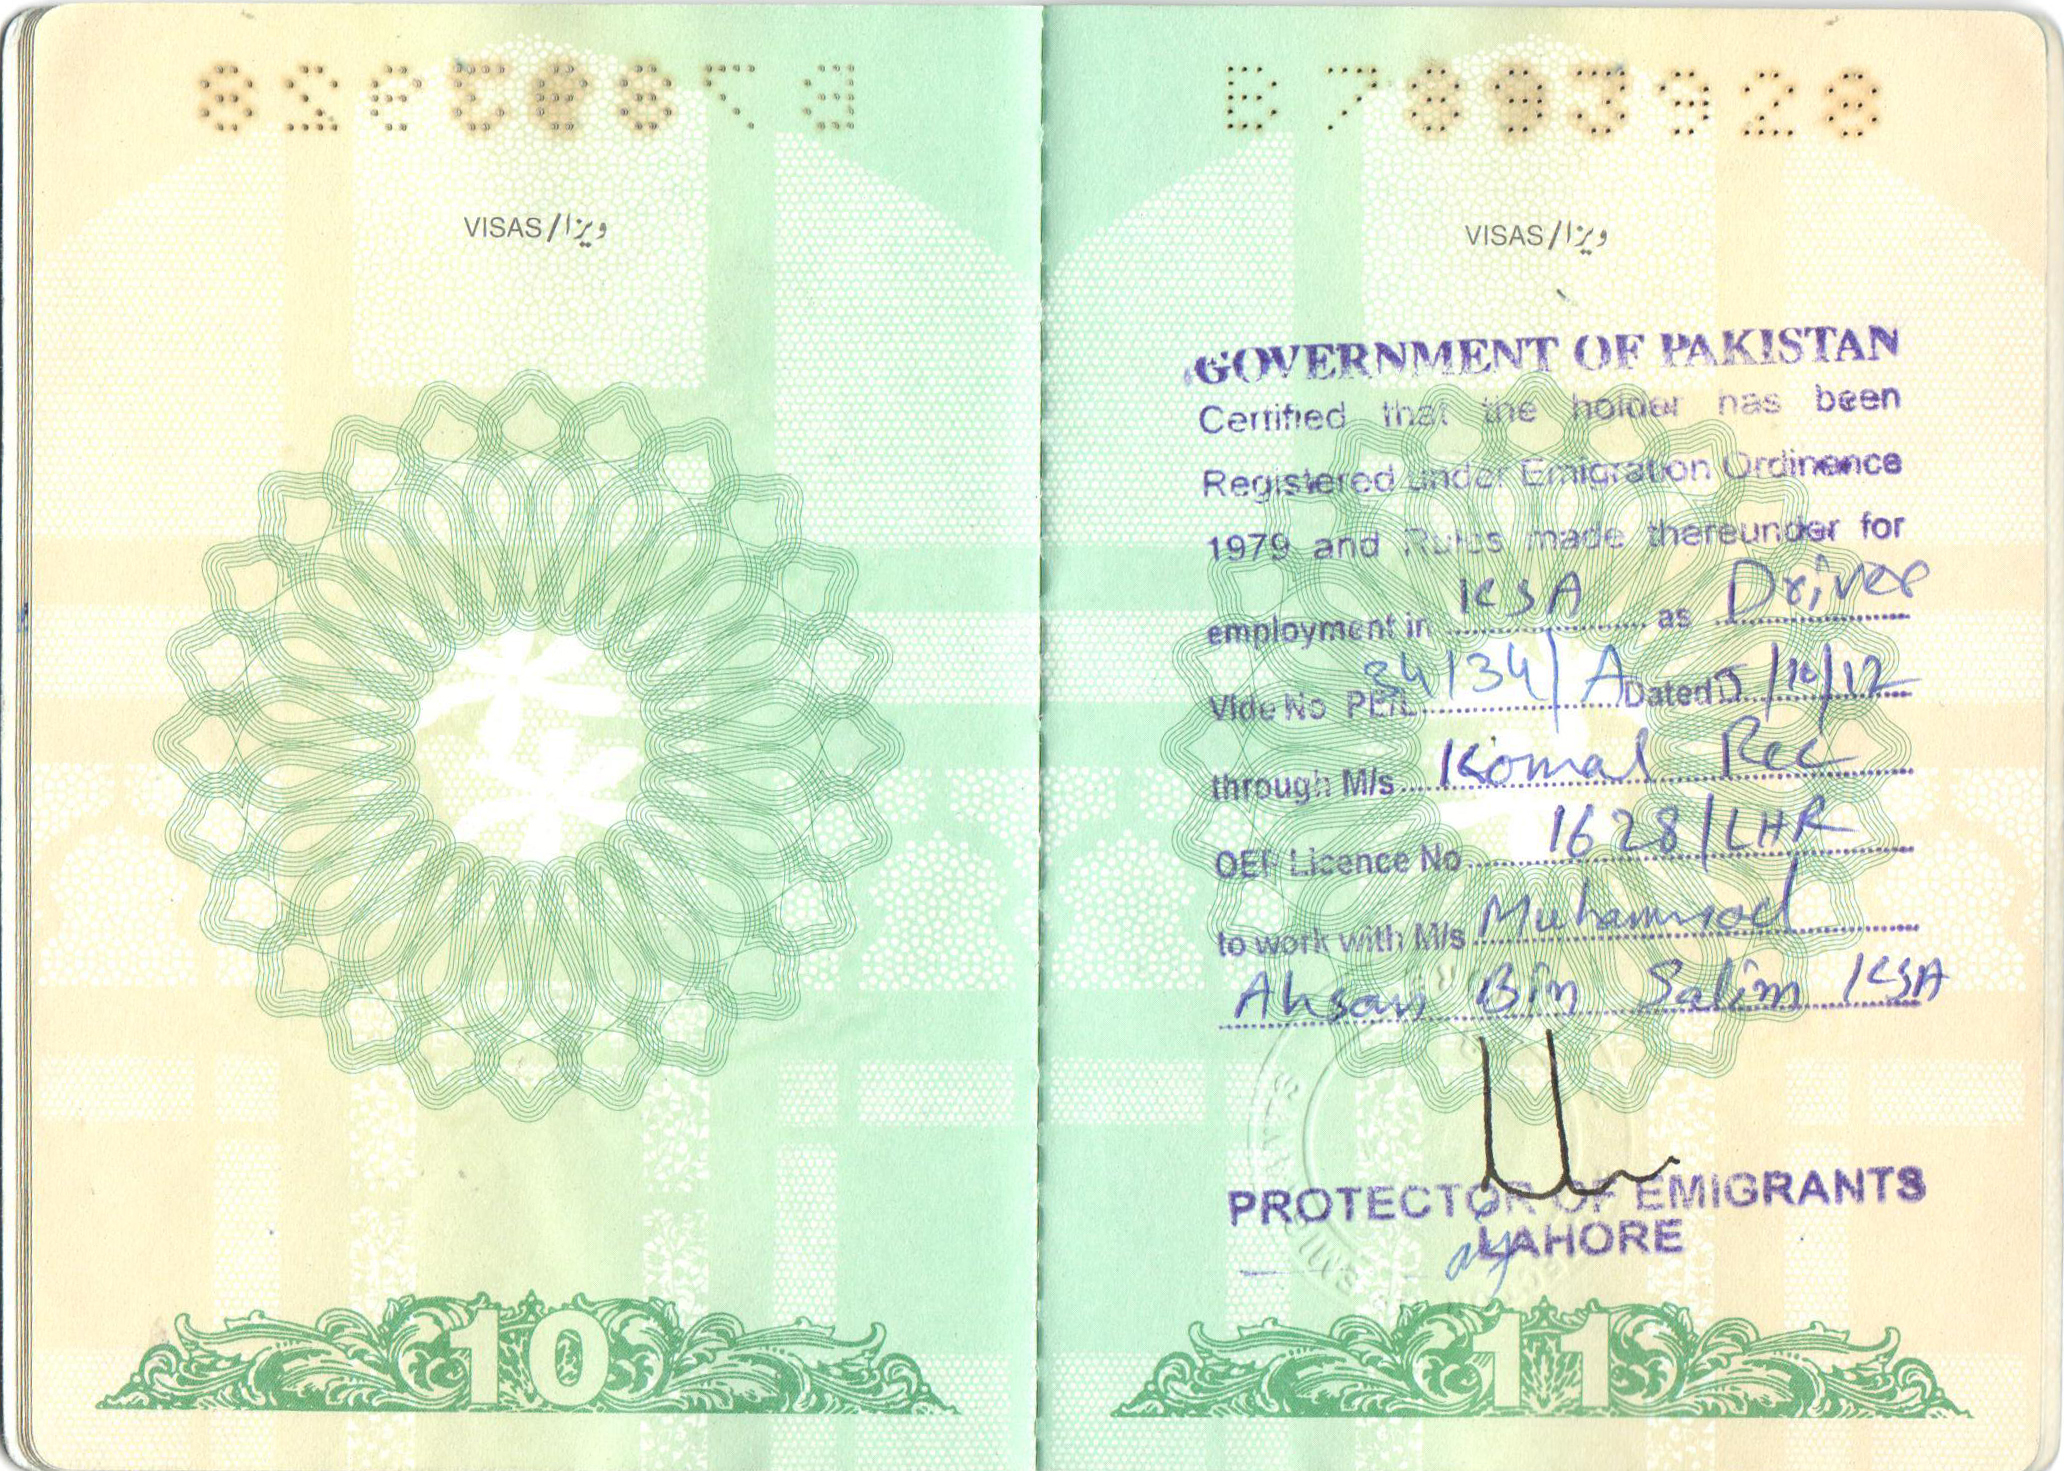 VISAS/ویزا
VISAS/ویزا
GOVERNMENT OF PAKISTAN
Certified that the holder has been
Registered under Emigration Ordinence
1979 and Rules made thereunder for
employment in KSA as Driver
Vide No PE/L 24134/A Dated 5/10/12
through M/s Komal Rec
OEP Licence No 1628/LHR
to work with M/s Muhammad
Ahsan Bin Salim KSA
PROTECTOR OF EMIGRANTS
LAHORE
10
11